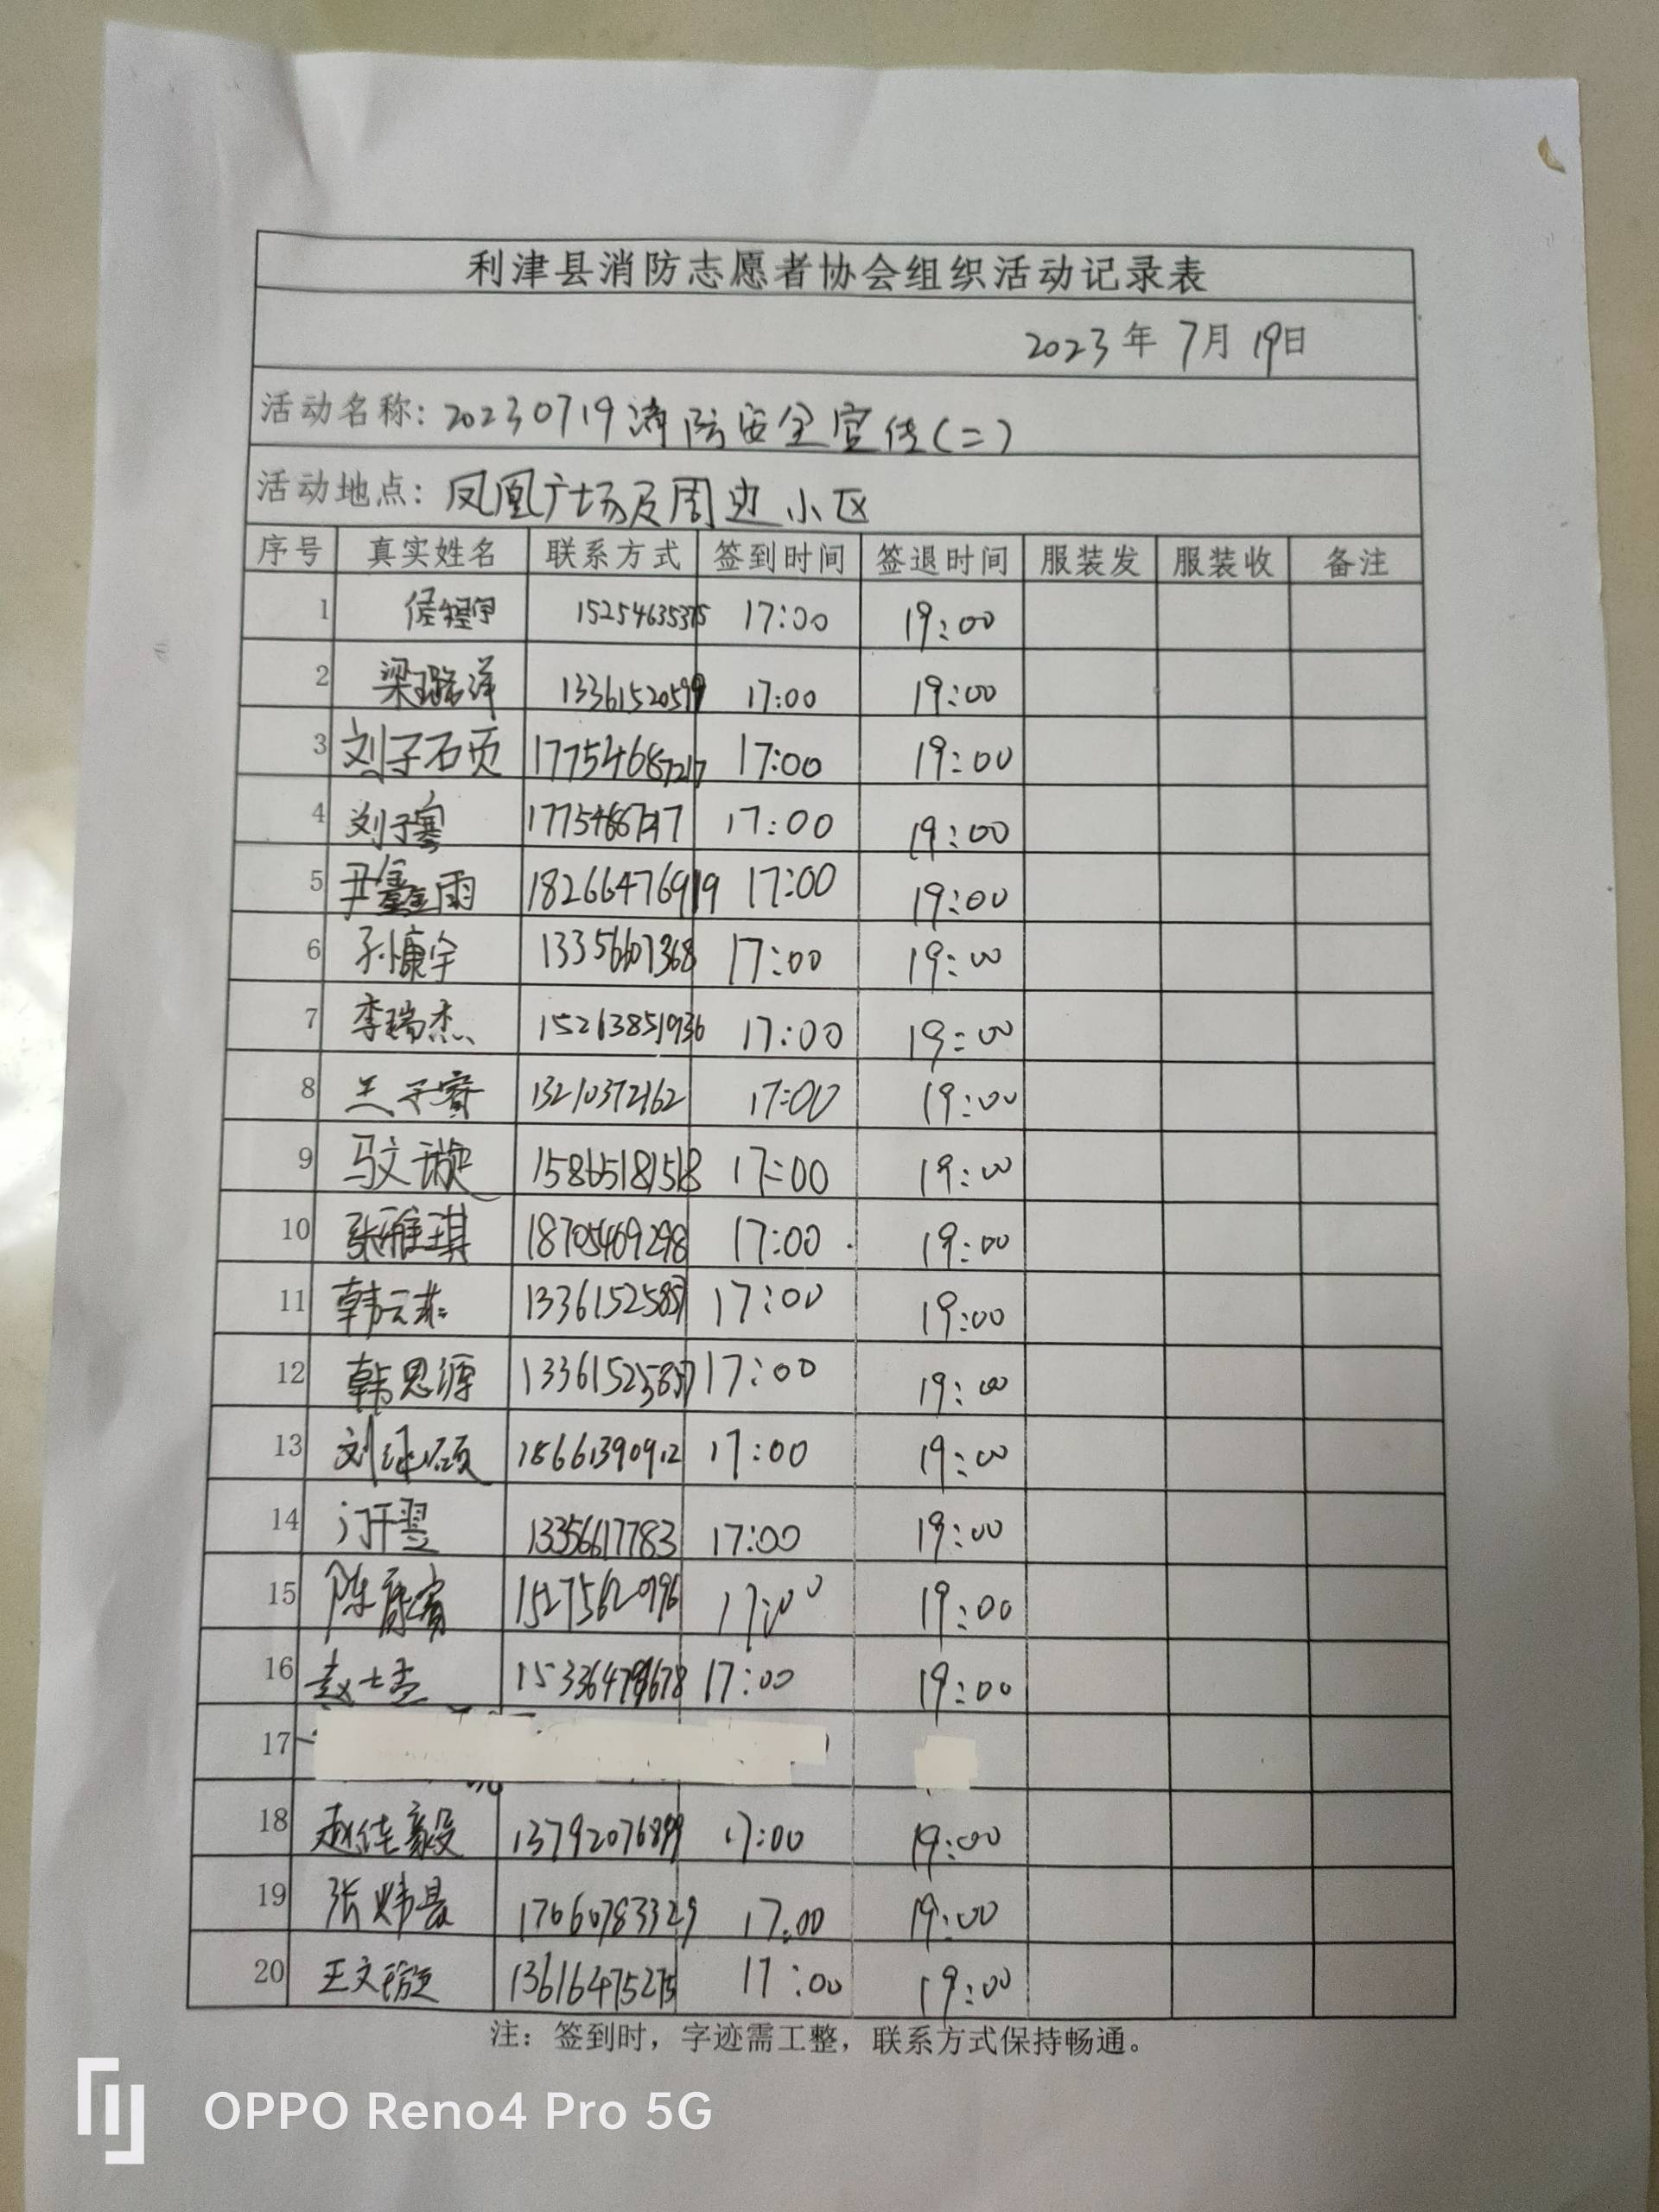 利津县消防志愿者协会组织活动记录表
2023年 7月 19日
活动名称：20230719消防安全宣传(二)
活动地点：凤凰广场及周边小区
序号 真实姓名 联系方式 签到时间 签退时间 服装发 服装收 备注
1 15254635375 17:00 19:00
2 梁璐洋 13361520599 17:00 19:00
3 刘子硕 17754687217 17:00 19:00
4 刘子骞 17:00 19:00
5 尹鑫雨 18266476919 17:00 19:00
6 孙慷宇 13356607368 17:00 19:00
7 李瑞杰 15263851936 17:00 19:00
8 兰子睿 13210372162 17:00 19:00
9 马文璇 15865181518 17:00 19:00
10 张雅琪 18705469298 17:00 19:00
11 13361525837 17:00 19:00
12 韩思源 13361525837 17:00 19:00
13 18661390912 17:00 19:00
14 门千翌 13356617783 17:00 19:00
15 17:00 19:00
16 赵士杰 17:00 19:00
17
18 赵佳毅 13792076899 17:00 19:00
19 17660783329 17:00 19:00
20 王文璇 13616475275 17:00 19:00
注：签到时，字迹需工整，联系方式保持畅通。
OPPO Reno4 Pro 5G